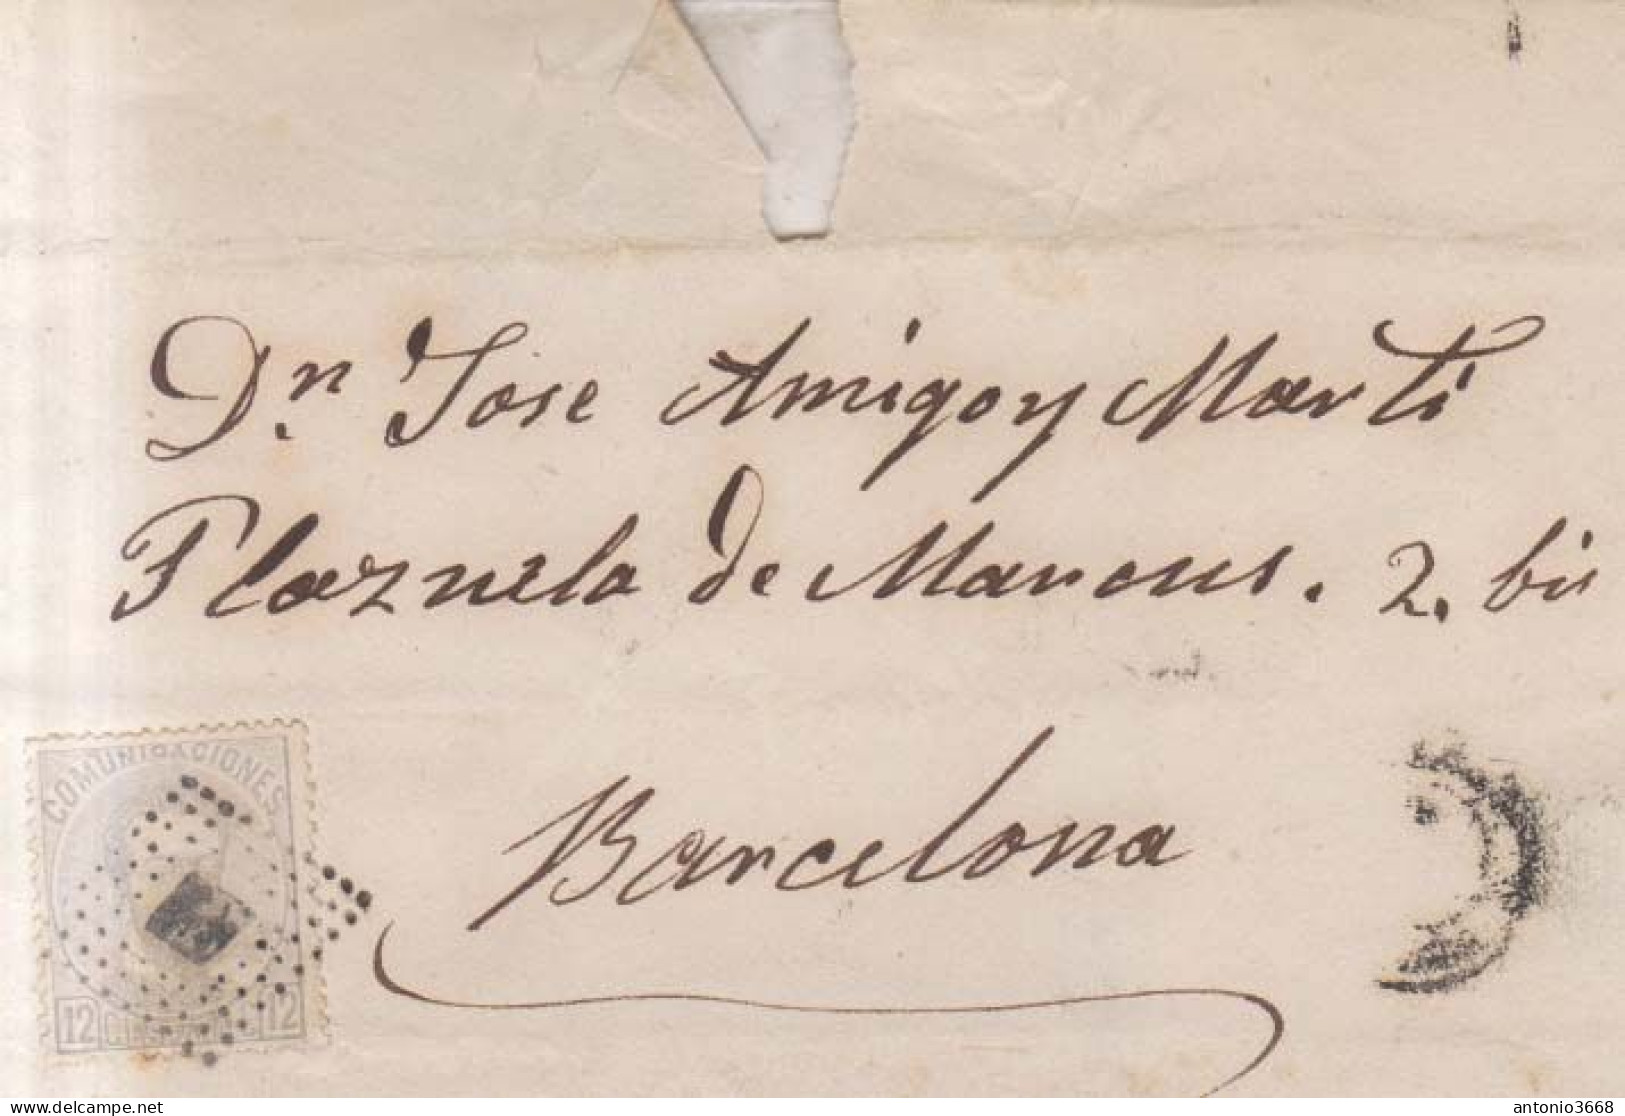 Dn. Jose Amigo y Marti
Plazuela de Marcus. 2. bis
Barcelona
COMUNICACIONES
12 12
antonio3668